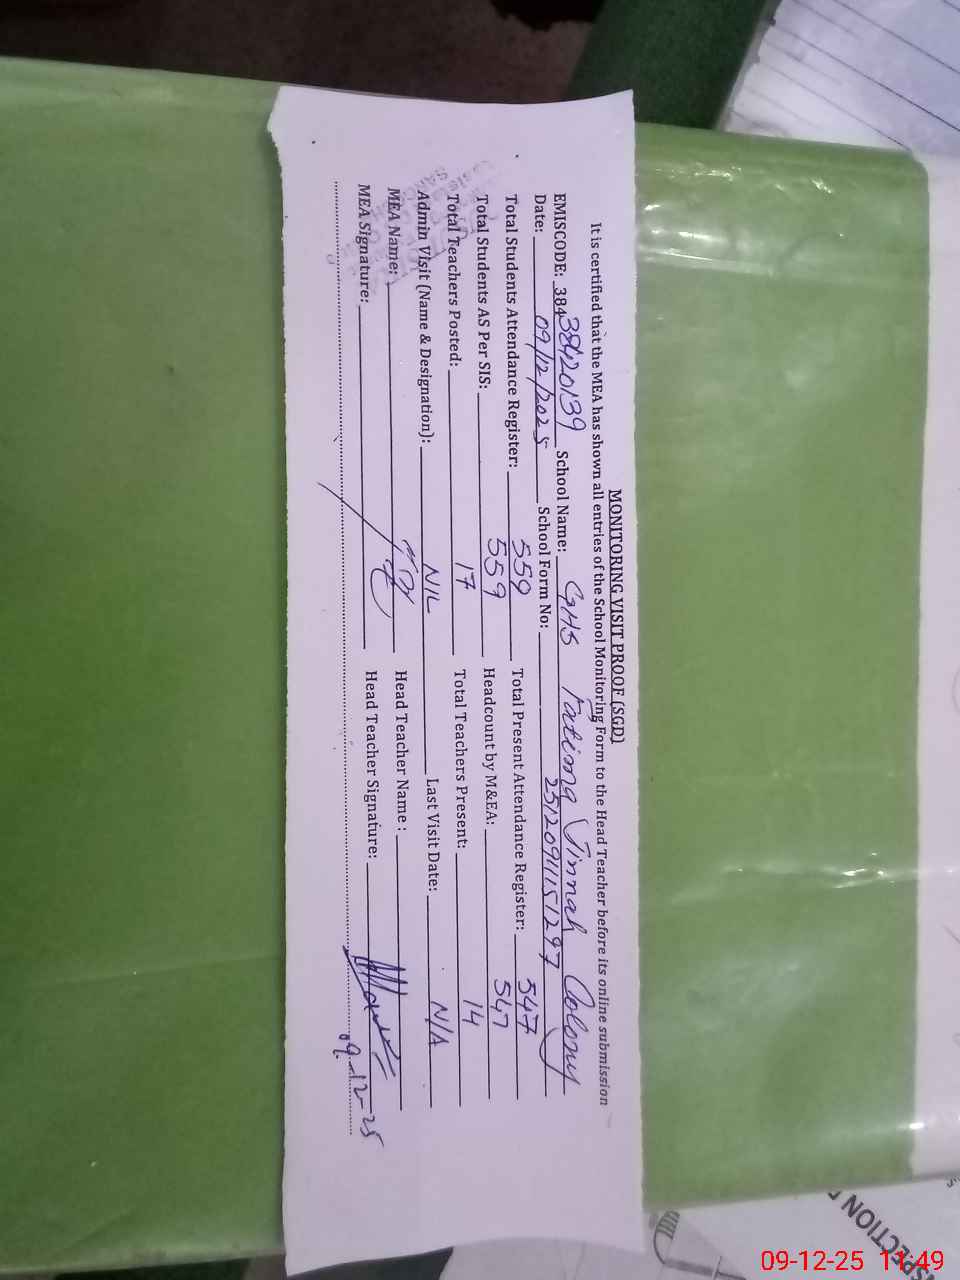 MONITORING VISIT PROOF (SGD)
It is certified that the MEA has shown all entries of the School Monitoring Form to the Head Teacher before its online submission
EMISCODE: 384 38420139 School Name: GHS Fatima Jinnah Colony
Date: 09/12/2025 School Form No: 25120911151297
Total Students Attendance Register: 559 Total Present Attendance Register: 547
Total Students AS Per SIS: 559 Headcount by M&EA: 547
Total Teachers Posted: 17 Total Teachers Present: 14
Admin Visit (Name & Designation): NIL Last Visit Date: N/A
MEA Name: Head Teacher Name :
MEA Signature: Head Teacher Signature:
09-12-25
SPECTION
09-12-25 11:49